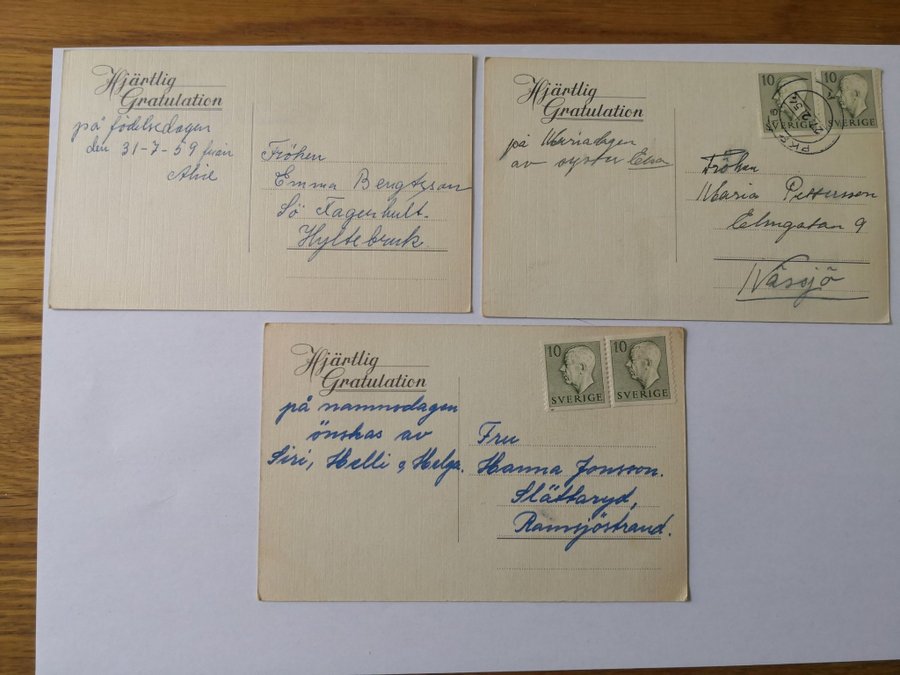 Hjärtlig
Gratulation
på födelsedagen
den 31-7-59 från
Fröken
Emma Bengtsson
Sö Fagerhult.
Hyltebruk
Hjärtlig
Gratulation
på Mariadagen
av syster Elsa
10 10
SVERIGE SVERIGE
Fröken
Maria Pettersson
Elmgatan 9
Nässjö
Hjärtlig
Gratulation
på namnsdagen
önskas av
Siri, Helli & Helga.
10 10
SVERIGE SVERIGE
Fru
Hanna Jonsson.
Slättaryd,
Ramsjöstrand.